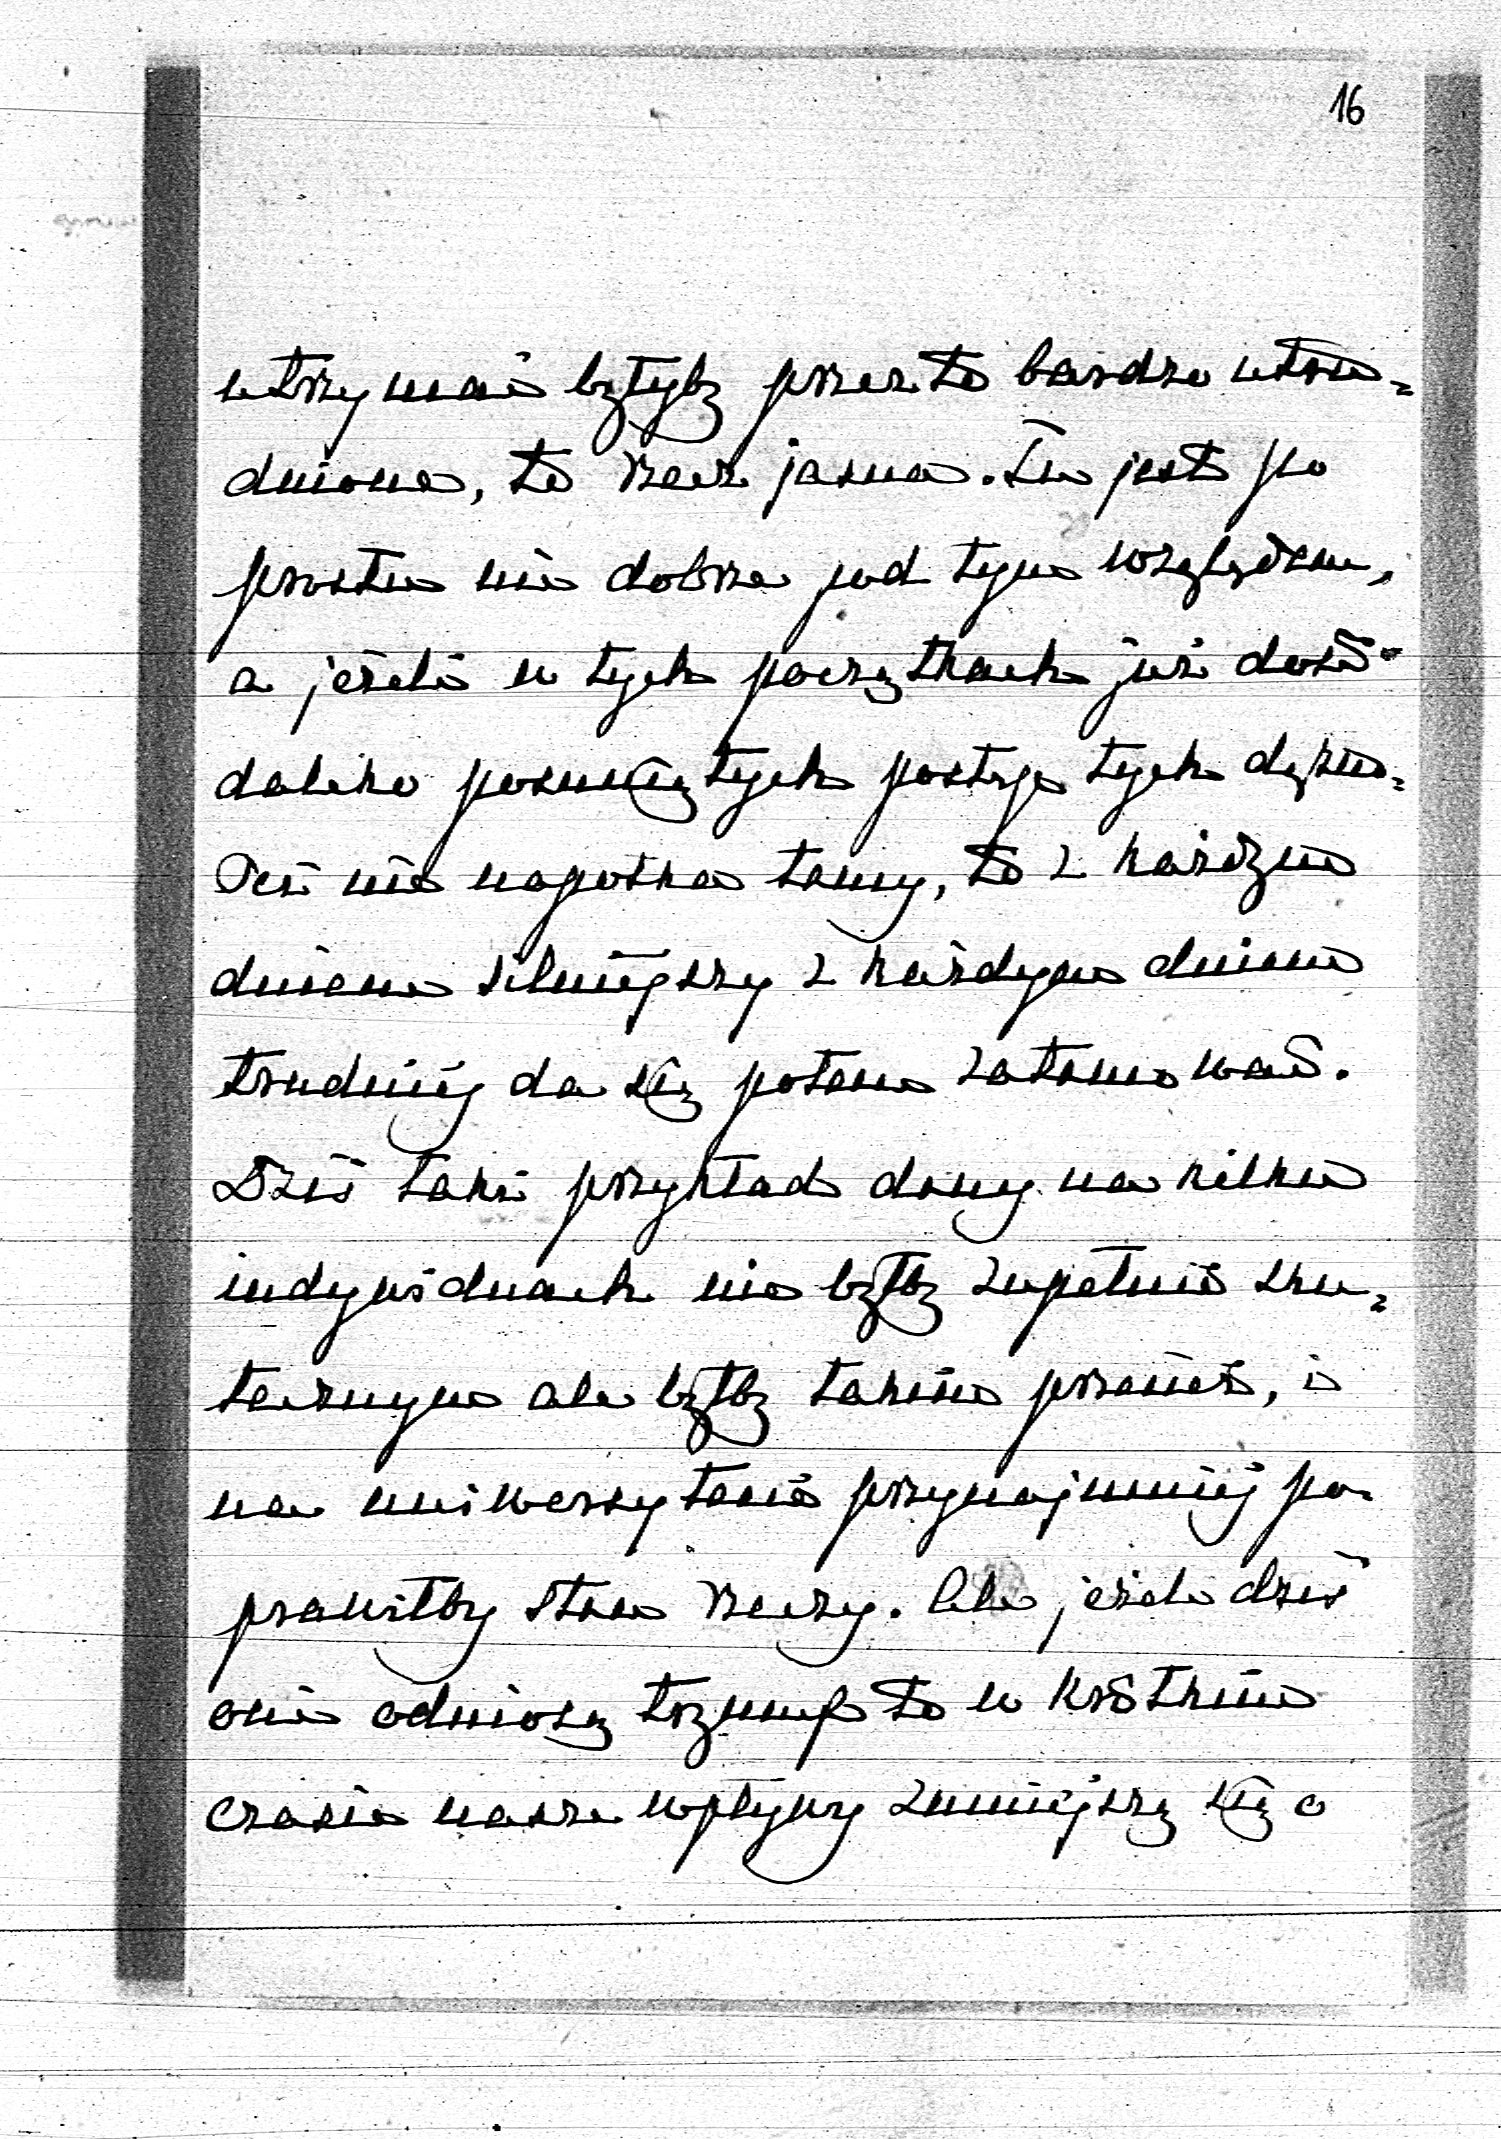 16
utrzymać byłyby przez to bardzo utru-
dnione, to rzecz jasna. Tu jest po
prostu nie dobrze pod tym względem,
a jeżeli w tych początkach już dość
daleko posuniętych postęp tych dążno-
ści nie napotka tamy, to z każdym
dniem silniejszy z każdym dniem
trudniej da się potem zatamować.
Dziś taki przykład dany na kilku
indywiduach nie byłby zupełnie sku-
tecznym ale byłby takim przecież, i
na uniwersytecie przynajmniej po-
prawiłby stan rzeczy. Ale jeżeli dziś
oni odniosą tryumf to w krótkim
czasie nasze wpływy zmniejszą się o